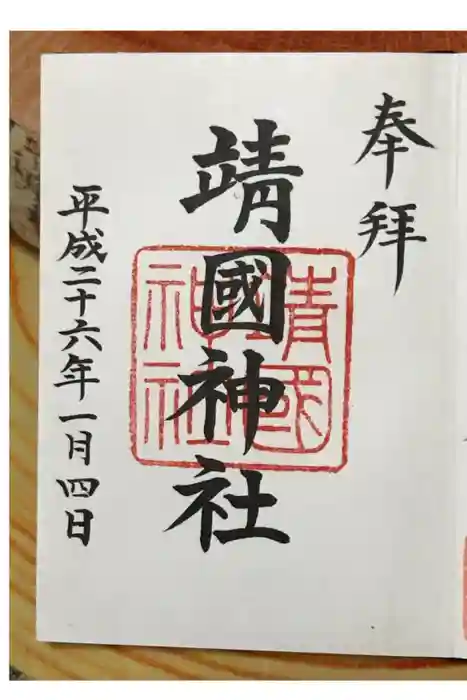 奉拝
靖國神社
靖國
神社
平成二十六年一月四日